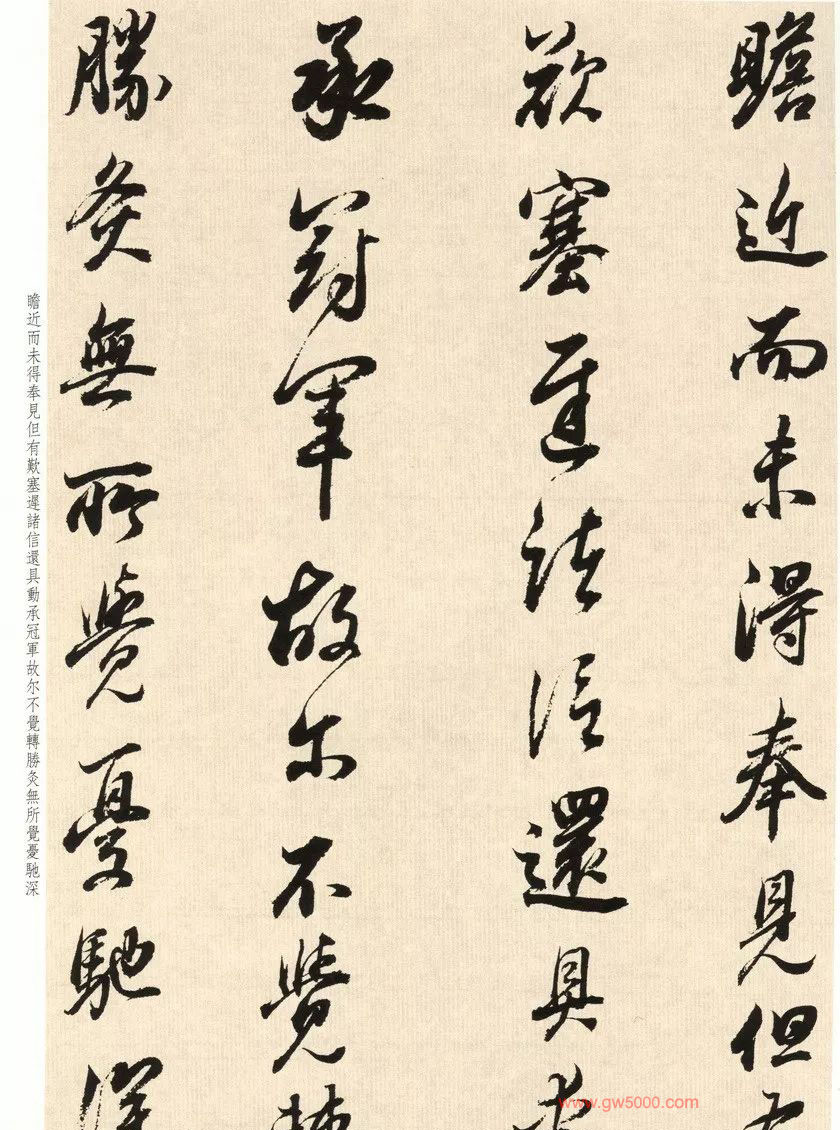 瞻近而未得奉見但有
歎塞遲諸信還具動
承冠軍故尔不覺轉
勝灸無所覺憂馳深
瞻近而未得奉見但有歎塞遲諸信還具動承冠軍故尔不覺轉勝灸無所覺憂馳深
www.gw5000.com